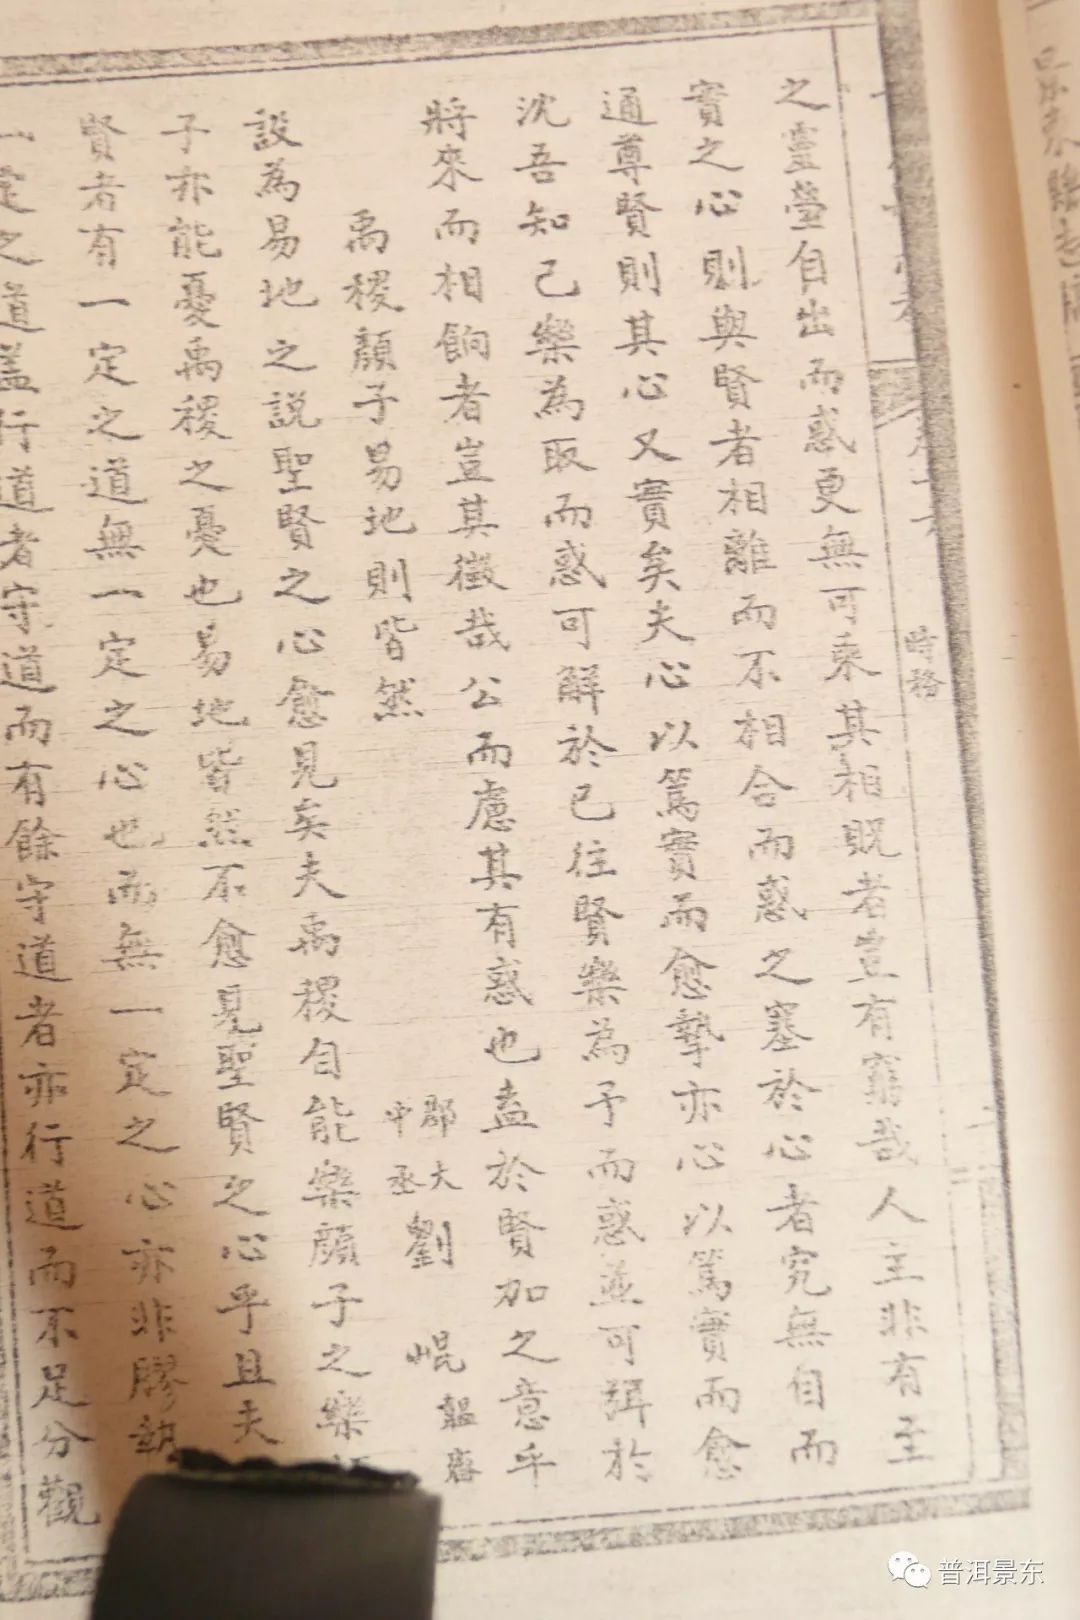 之靈瑩自出而惑更無可乘其相貺者豈有窮哉人主非有至
實之心則與賢者相離而不相合而惑之塞於心者究無自而
通尊賢則其心又實矣夫心以篤實而愈摯亦心以篤實而愈
沈吾知己樂為取而惑可解於已往賢樂為予而惑並可弭於
將來而相餉者豈其微哉公而慮其有惑也盍於賢加之意乎
禹稷顏子易地則皆然
郡大
中丞
劉崐
韞齋
設為易地之說聖賢之心愈見矣夫禹稷自能樂顏子之樂
子亦能憂禹稷之憂也易地皆然不愈見聖賢之心乎且夫
賢者有一定之道無一定之心也而無一定之心亦非膠執
一定之道蓋行道者守道而有餘守道者亦行道而不足分觀
時格
普洱景东